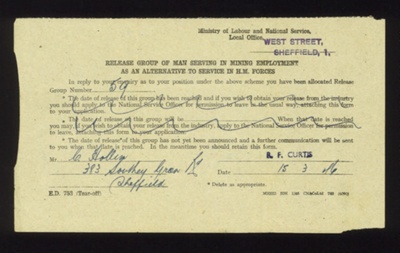 Ministry of Labour and National Service,
Local Office,
WEST STREET,
SHEFFIELD, 1.
RELEASE GROUP OF MAN SERVING IN MINING EMPLOYMENT
AS AN ALTERNATIVE TO SERVICE IN H.M. FORCES
In reply to your inquiry as to your position under the above scheme you have been allocated Release
Group Number 59
* The date of release of this group has been reached and if you wish to obtain your release from the industry
you should apply to the National Service Officer for permission to leave in the usual way, attaching this form
to your application.
* The date of release of this group will be When that date is reached
you may, if you wish to obtain your release from the industry, apply to the National Service Officer for permission
to leave, attaching this form to your application.
* The date of release of this group has not yet been announced and a further communication will be sent
to you when that date is reached. In the meantime you should retain this form.
Mr. R. F. CURTIS
393 Southey Green Rd Date 15 3 46
Sheffield * Delete as appropriate.
E.D. 753 (Tear-off)